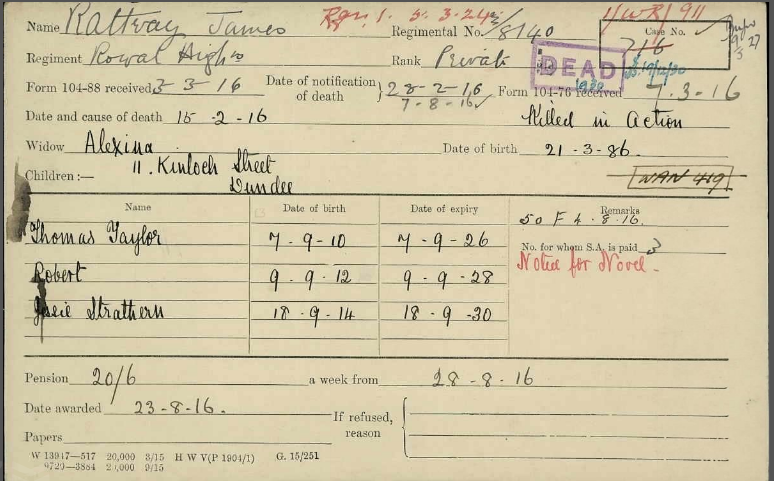 Name Rattray James Regimental No. S/8140 1/WR/911
Ren 1. 5.3.24 Case No. 716
Regiment Royal Highrs Rank Private DEAD
Form 104-88 received 3-3-16 Date of notification of death } 28-2-16 Form 104-76 received 7.3-16
7-8-16
Date and cause of death 15-2-16 Killed in Action
Widow Alexina Date of birth 21-3-86.
11. Kinloch Street
Children:— Dundee WAN 419
Name Date of birth Date of expiry Remarks
50 F 4.8.16.
Thomas Taylor 7-9-10 7-9-26
No. for whom S.A. is paid 3
Noted for Novel.
Robert 9.9.12 9-9-28
Strathern 18-9-14 18-9-30
Pension 20/6 a week from 28-8-16
Date awarded 23-8-16. If refused, reason {
Papers
W 13947—517 20,000 3/15 H W V(P 1904/1) G. 15/251
9720—3884 20,000 9/15